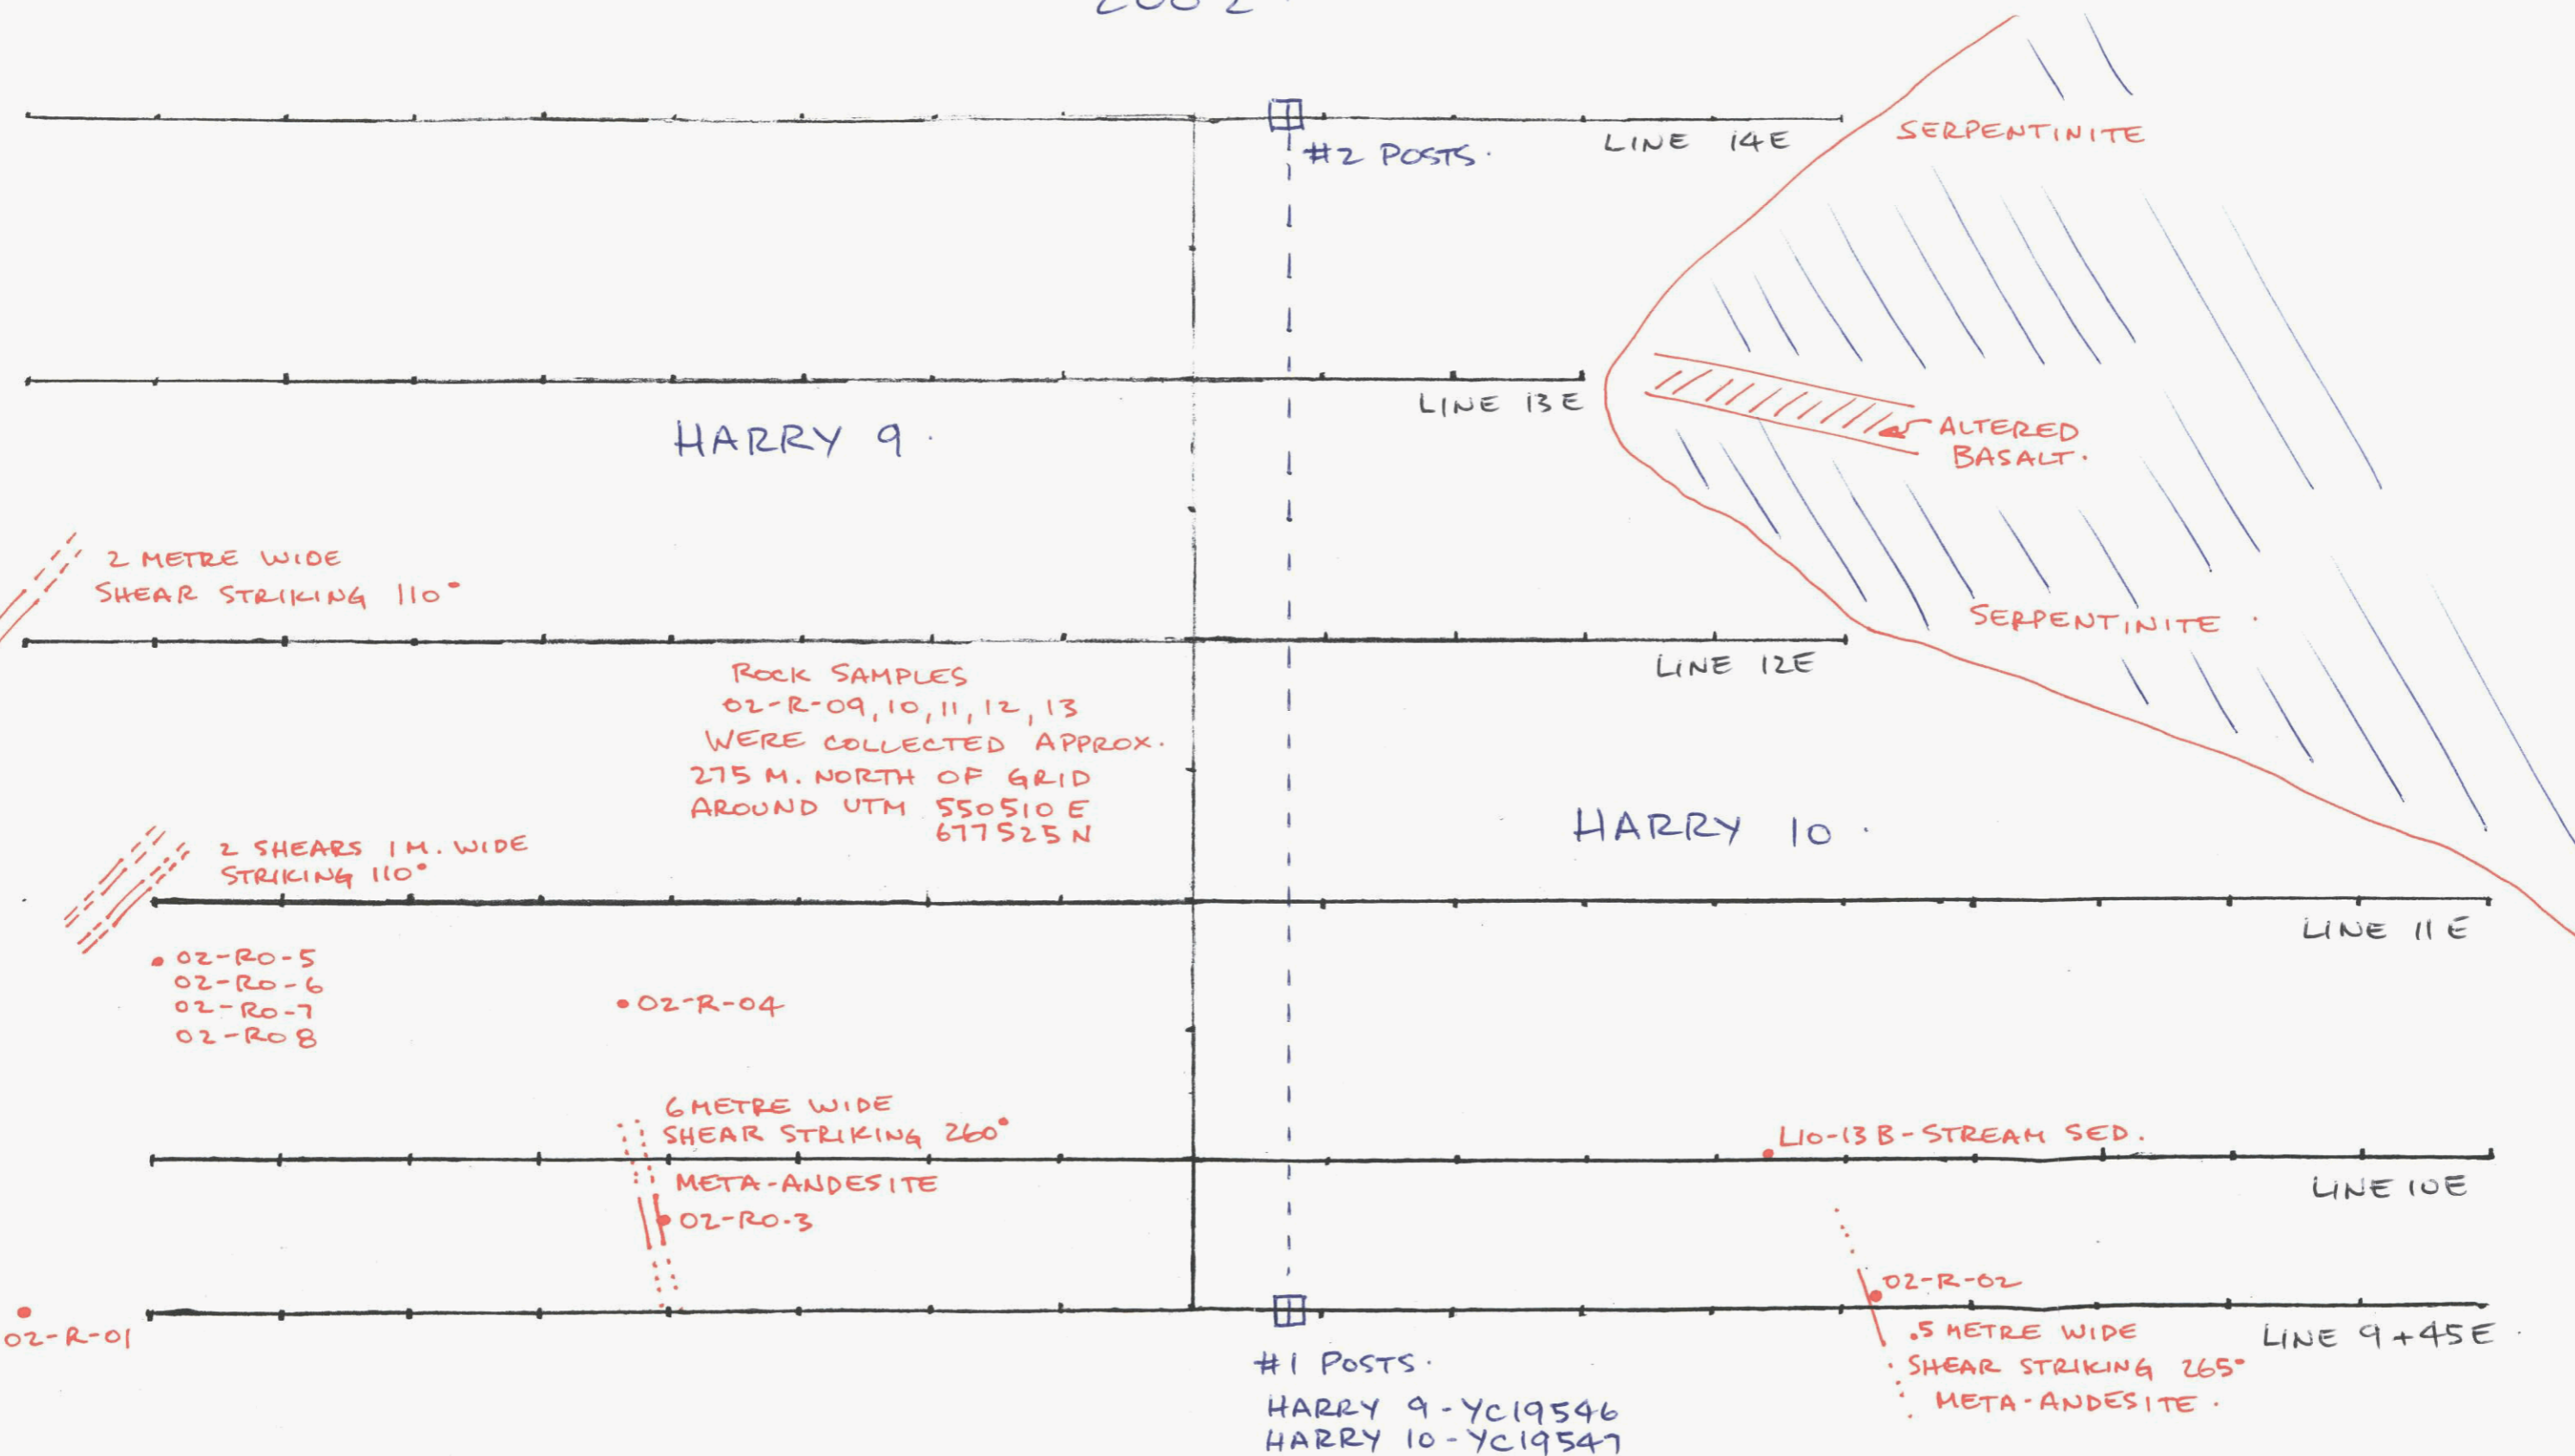 2002
#2 POSTS.
LINE 14E
SERPENTINITE
LINE 13E
HARRY 9.
ALTERED
BASALT.
2 METRE WIDE
SHEAR STRIKING 110°
SERPENTINITE
LINE 12E
ROCK SAMPLES
02-R-09, 10, 11, 12, 13
WERE COLLECTED APPROX.
275 M. NORTH OF GRID
AROUND UTM 550510 E
677525 N
HARRY 10.
2 SHEARS 1 M. WIDE
STRIKING 110°
LINE 11E
02-RO-5
02-RO-6
02-RO-7
02-RO8
02-R-04
6 METRE WIDE
SHEAR STRIKING 260°
META-ANDESITE
02-RO-3
L10-13B-STREAM SED.
LINE 10E
02-R-01
02-R-02
.5 METRE WIDE
SHEAR STRIKING 265°
META-ANDESITE.
LINE 9+45E
#1 POSTS.
HARRY 9-YC19546
HARRY 10-YC19547